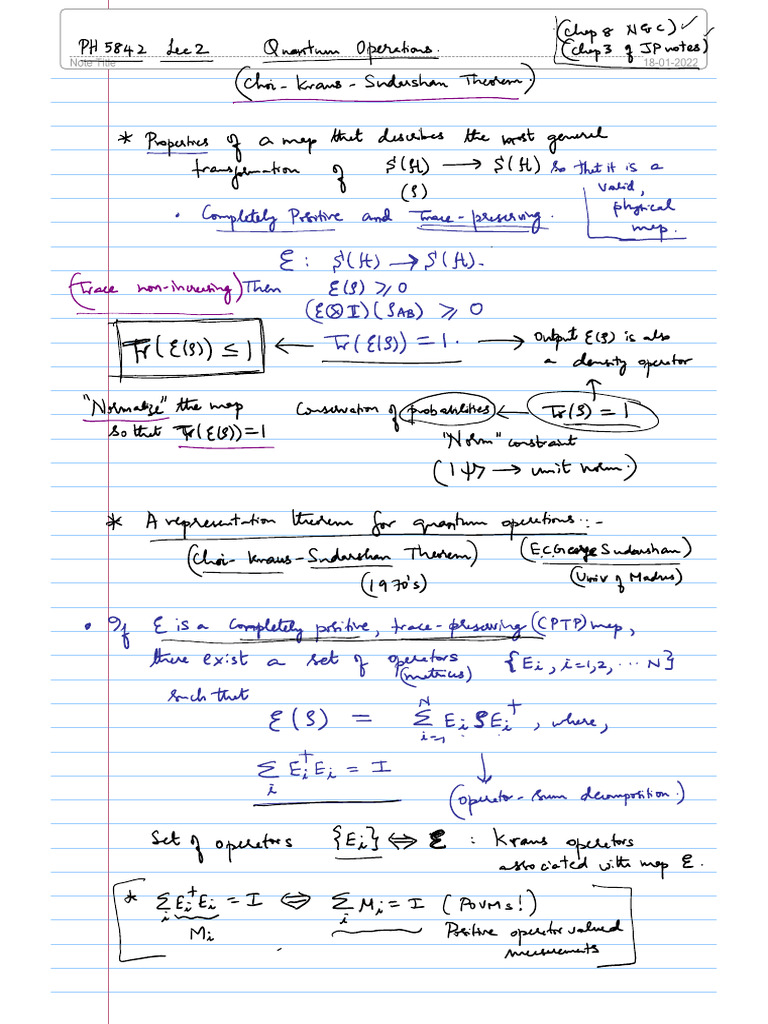 PH 5842 Lec 2 Quantum Operations.
(Chap 8 N&C) ✓
(Chap 3 of JP notes) ✓
Note Title
18-01-2022
(Choi-Kraus-Sudarshan Theorem)
* Properties of a map that describes the most general
transformation of S(ℋ) → S(ℋ) so that it is a
(ρ) valid,
physical
map.
• Completely Positive and Trace-preserving.
ℰ : S(ℋ) → S(ℋ).
(Trace non-increasing) Then ℰ(ρ) ≥ 0
(ℰ⊗I)(ρ_AB) ≥ 0
Tr(ℰ(ρ)) ≤ 1 ← Tr(ℰ(ρ)) = 1. → Output ℰ(ρ) is also
a density operator
"Normalize" the map Conservation of probabilities ← Tr(ρ) = 1
so that Tr(ℰ(ρ)) = 1
"Norm" constraint
(|ψ⟩ → unit norm.)
* A representation theorem for quantum operations :-
(Choi-Kraus-Sudarshan Theorem) (E.C.George Sudarshan)
(1970's) (Univ of Madras)
• If ℰ is a completely positive, trace-preserving (CPTP) map,
there exist a set of operators {E_i, i=1,2, ... N}
(matrices)
such that
ℰ(ρ) = Σ_{i=1}^{N} E_i ρ E_i^†, where,
Σ_i E_i^† E_i = I ↓
(operator-sum decomposition.)
Set of operators {E_i} ⇔ ℰ : Kraus operators
associated with map ℰ.
* Σ_i E_i^† E_i = I ⇔ Σ_i M_i = I (POVMs!)
M_i Positive operator valued
measurements